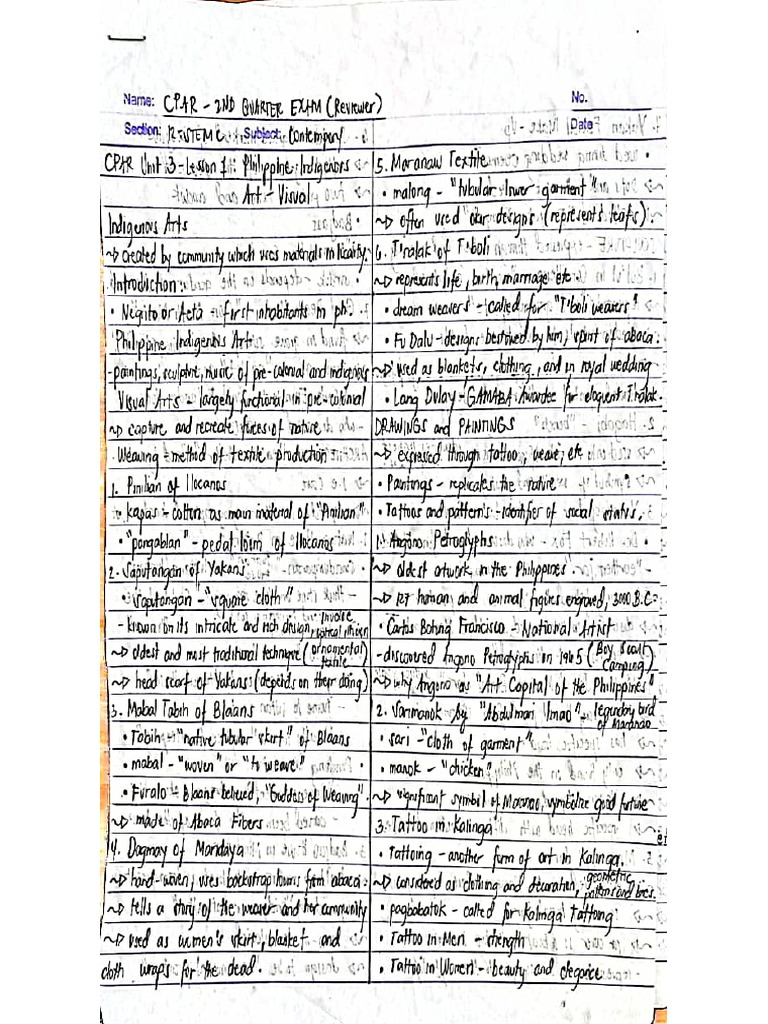 Name: CPAR - 2ND QUARTER EXAM (Reviewer)
No.
Section: Subject: Contempory
Date
CPAR Unit 3 - Lesson 1: Philippine Indigenous
Art - Visual
Indigenous Arts
~> created by community which uses materials in locality.
Introduction
• Negrito or Aeta - first inhabitants in ph
Philippine Indigenous Art
- paintings, sculpture, music of pre-colonial and indigenous
Visual Arts - largely functional in pre-colonial
~> capture and recreate forces of nature
Weaving - method of textile production
1. Pinilian of Ilocanos
• kapas - cotton as main material of "Pinilian."
• "pangablan" - pedal loom of Ilocanos
2. Saputangan of Yakans
• saputangan - "square cloth"
- known on its intricate and rich design, involve optical illusion
~> oldest and most traditional technique (ornamental textile
~> head scarf of Yakans (depends on their doing)
3. Mabal Tabih of Blaans
• Tabih - "native tubular skirt" of Blaans
• mabal - "woven" or "to weave"
• Furalo - Blaans believed, "Goddess of Weaving"
~> made of Abaca Fibers
4. Dagmay of Mandaya
~> hand-woven; uses backstrap looms from abaca
~> tells a story of the weaver and her community
~> used as women's skirt, blanket and
cloth wraps for the dead.
5. Maranaw Textile
• malong - "tubular lower garment"
~> often used okir designs (represents leafs)
6. T'nalak of T'boli
~> represents life, birth, marriage etc
• dream weavers - called for "T'boli weavers"
• Fu Dalu - designs bestowed by him; spirit of abaca
~> used as blankets, clothing, and in royal wedding
• Lang Dulay - GAMABA Awardee for eloquent T'nalak.
DRAWINGS and PAINTINGS
~> expressed through tattoo, weave, etc
• Paintings - replicates the nature
• Tattoos and patterns - identifier of social status.
1. Angono Petroglyphs
~> oldest artwork in the Philippines
~> 127 human and animal figures engraved, 3000 B.C.
• Carlos Botong Francisco - National Artist
- discovered Angono Petroglyphs in 1965 (Boy Scout Camping)
~> why Angono as "Art Capital of the Philippines"
2. Sarimanok by "Abdulmari Imao" - legendary bird of Maranao
• sari - "cloth of garment"
• manok - "chicken"
~> significant symbol of Maranao, symbolize good fortune
3. Tattoo in Kalinga
• Tattooing - another form of art in Kalinga.
~> considered as clothing and decoration, geometric patterns and lines.
• pagbabatok - called for Kalinga Tattooing
• Tattoo in Men - strength
• Tattoo in Women - beauty and elegance